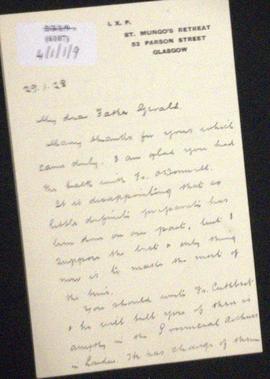 I. X. P.
ST. MUNGO'S RETREAT
52 PARSON STREET
GLASGOW
4/1/1/9
29.1.28
My dear Father Gerald.
Many thanks for yours which
came duly. I am glad you had
the talk with Fr. O'Donnell.
It is disappointing that so
little definite preparation has
been done on our part, but I
suppose the best & only thing
now is to make the most of
the time.
You should write Fr. Cuthbert
& he will tell you if there is
anything in the Provincial Archives
in London. He has charge of them